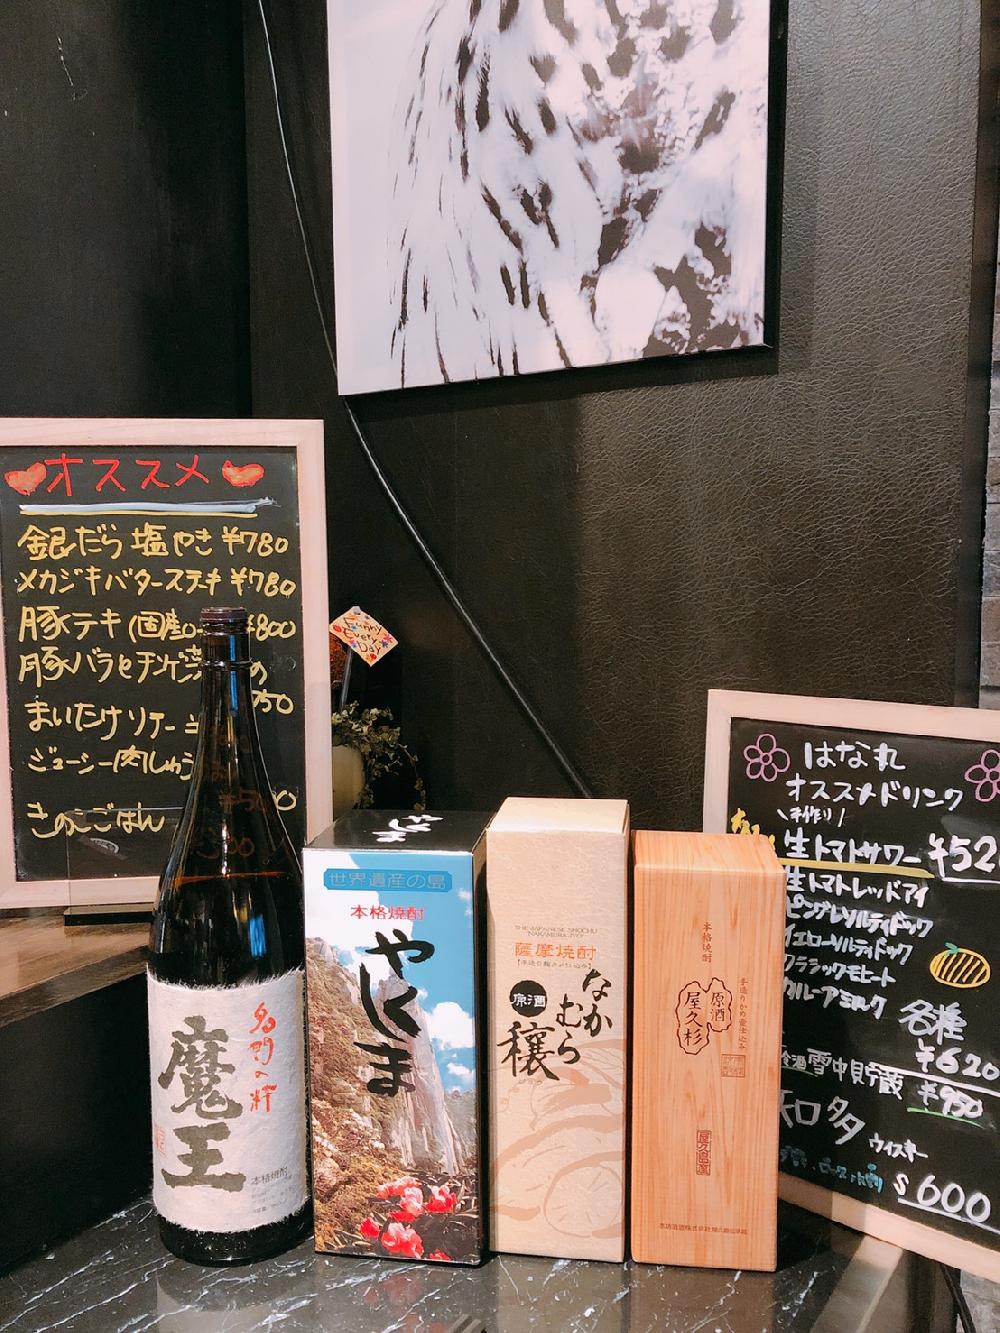 オススメ
銀だら塩やき ¥780
メカジキバターステーキ ¥780
豚テキ(国産ロ ¥800
豚バラとチンゲン菜 の
750
まいたけソテー
ジューシー肉しゅう
きのこごはん
Funny
Every
Day
はな丸
オススメドリンク
手作り
生トマトサワー ¥52
生トマトレッドアイ
ピングレソルティドック
イエローソルティドック
クラシックモヒート
カルーアミルク
各種
¥620
冷酒 雪中貯蔵 ¥950
知多 ウイスキー
$600
名門の粋
魔王
本格焼酎
やくしま
世界遺産の島
本格焼酎
やくしま
THE JAPANESE SHOCHU
NAKAMURA-JYO
薩摩焼酎
原酒
なかむら
穣
本格焼酎
手造りかめ壺仕込み
原酒
屋久杉